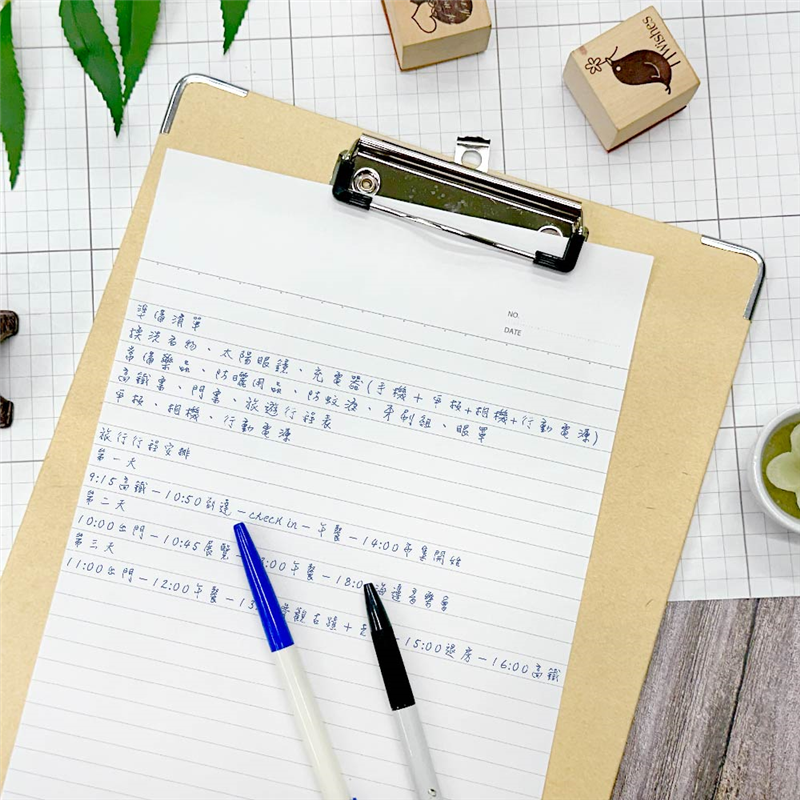 Wishes
NO.
DATE
準備清單
換洗衣物、太陽眼鏡、充電器(手機+平板+相機+行動電源)
常備藥品、防曬用品、防蚊液、牙刷組、眼罩
高鐵票、門票、旅遊行程表
平板、相機、行動電源
旅行行程安排
第一天
9:15高鐵-10:50到達-check in-午餐-14:00市集開始
第二天
10:00出門-10:45展覽 :00午餐-18:0 海邊音樂會
第三天
11:00出門-12:00午餐-13 參觀古蹟+ -15:00退房-16:00高鐵